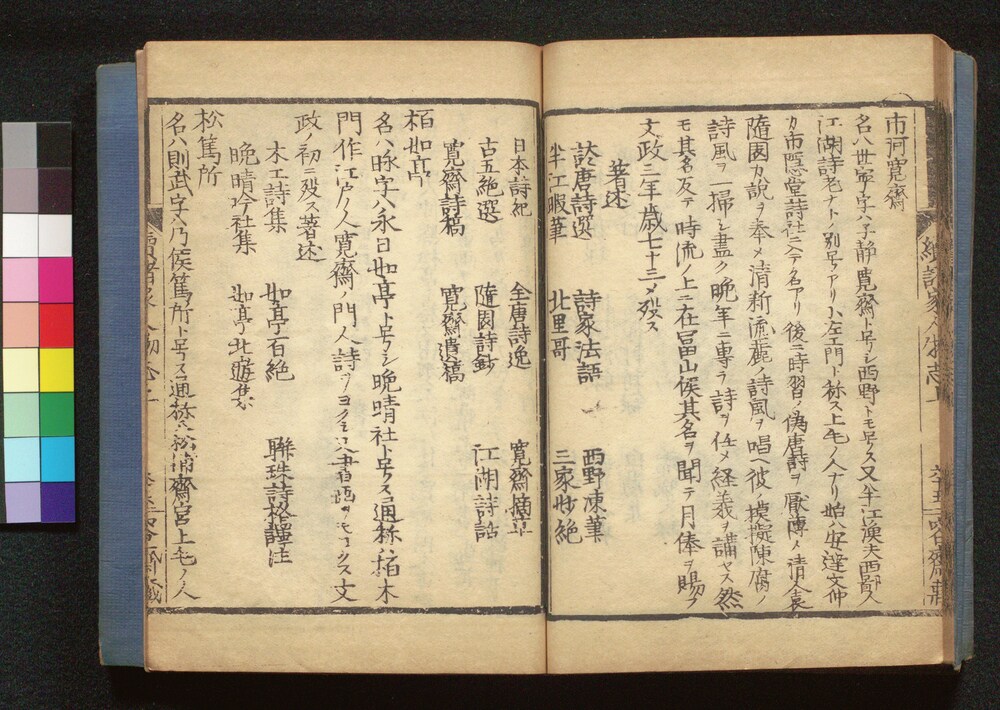 市河寛齋
名ハ世寧字ハ子静寛齋ト号シ西野トモ号ス又半江漁夫西鄙人
江湖詩老ナトノ別号アリ小左エ門ト称ス上毛ノ人ナリ始ハ安達文仲
カ市隠堂詩社ニ入テ名アリ後ニ時習ノ偽唐詩ヲ厭薄メ清人袁
随園カ説ヲ奉メ清新流麗ノ詩風ヲ唱ヘ彼ノ模擬陳腐ノ
詩風ヲ一掃シ盡ク晩年ニ専ラ詩ヲ任メ経義ヲ講セス然
モ其名反テ時流ノ上ニ在冨山侯其名ヲ聞テ月俸ヲ賜フ
文政三年歳七十三メ殁ス
著述
談唐詩選 詩家法語 西野凍筆
半江暇筆 北里哥 三家妙絶
日本詩紀 全唐詩逸 寛齋摘草
古五絶選 随園詩鈔 江湖詩話
寛齋詩稿 寛齋遺稿
栢如亭
名ハ昹字ハ永日如亭ト号シ晩晴社ト号ス通称ハ栢木
門作江戸ノ人寛齋ノ門人詩ヲヨクシ又書画ヲモヨクス文
政ノ初ニ殁ス著述
木工詩集 如亭百絶 聯珠詩格譯注
晩晴吟社集 如亭北遊集
松篤所
名ハ則武字乃侯篤所ト号ス通称ハ松浦齋宮上毛ノ人